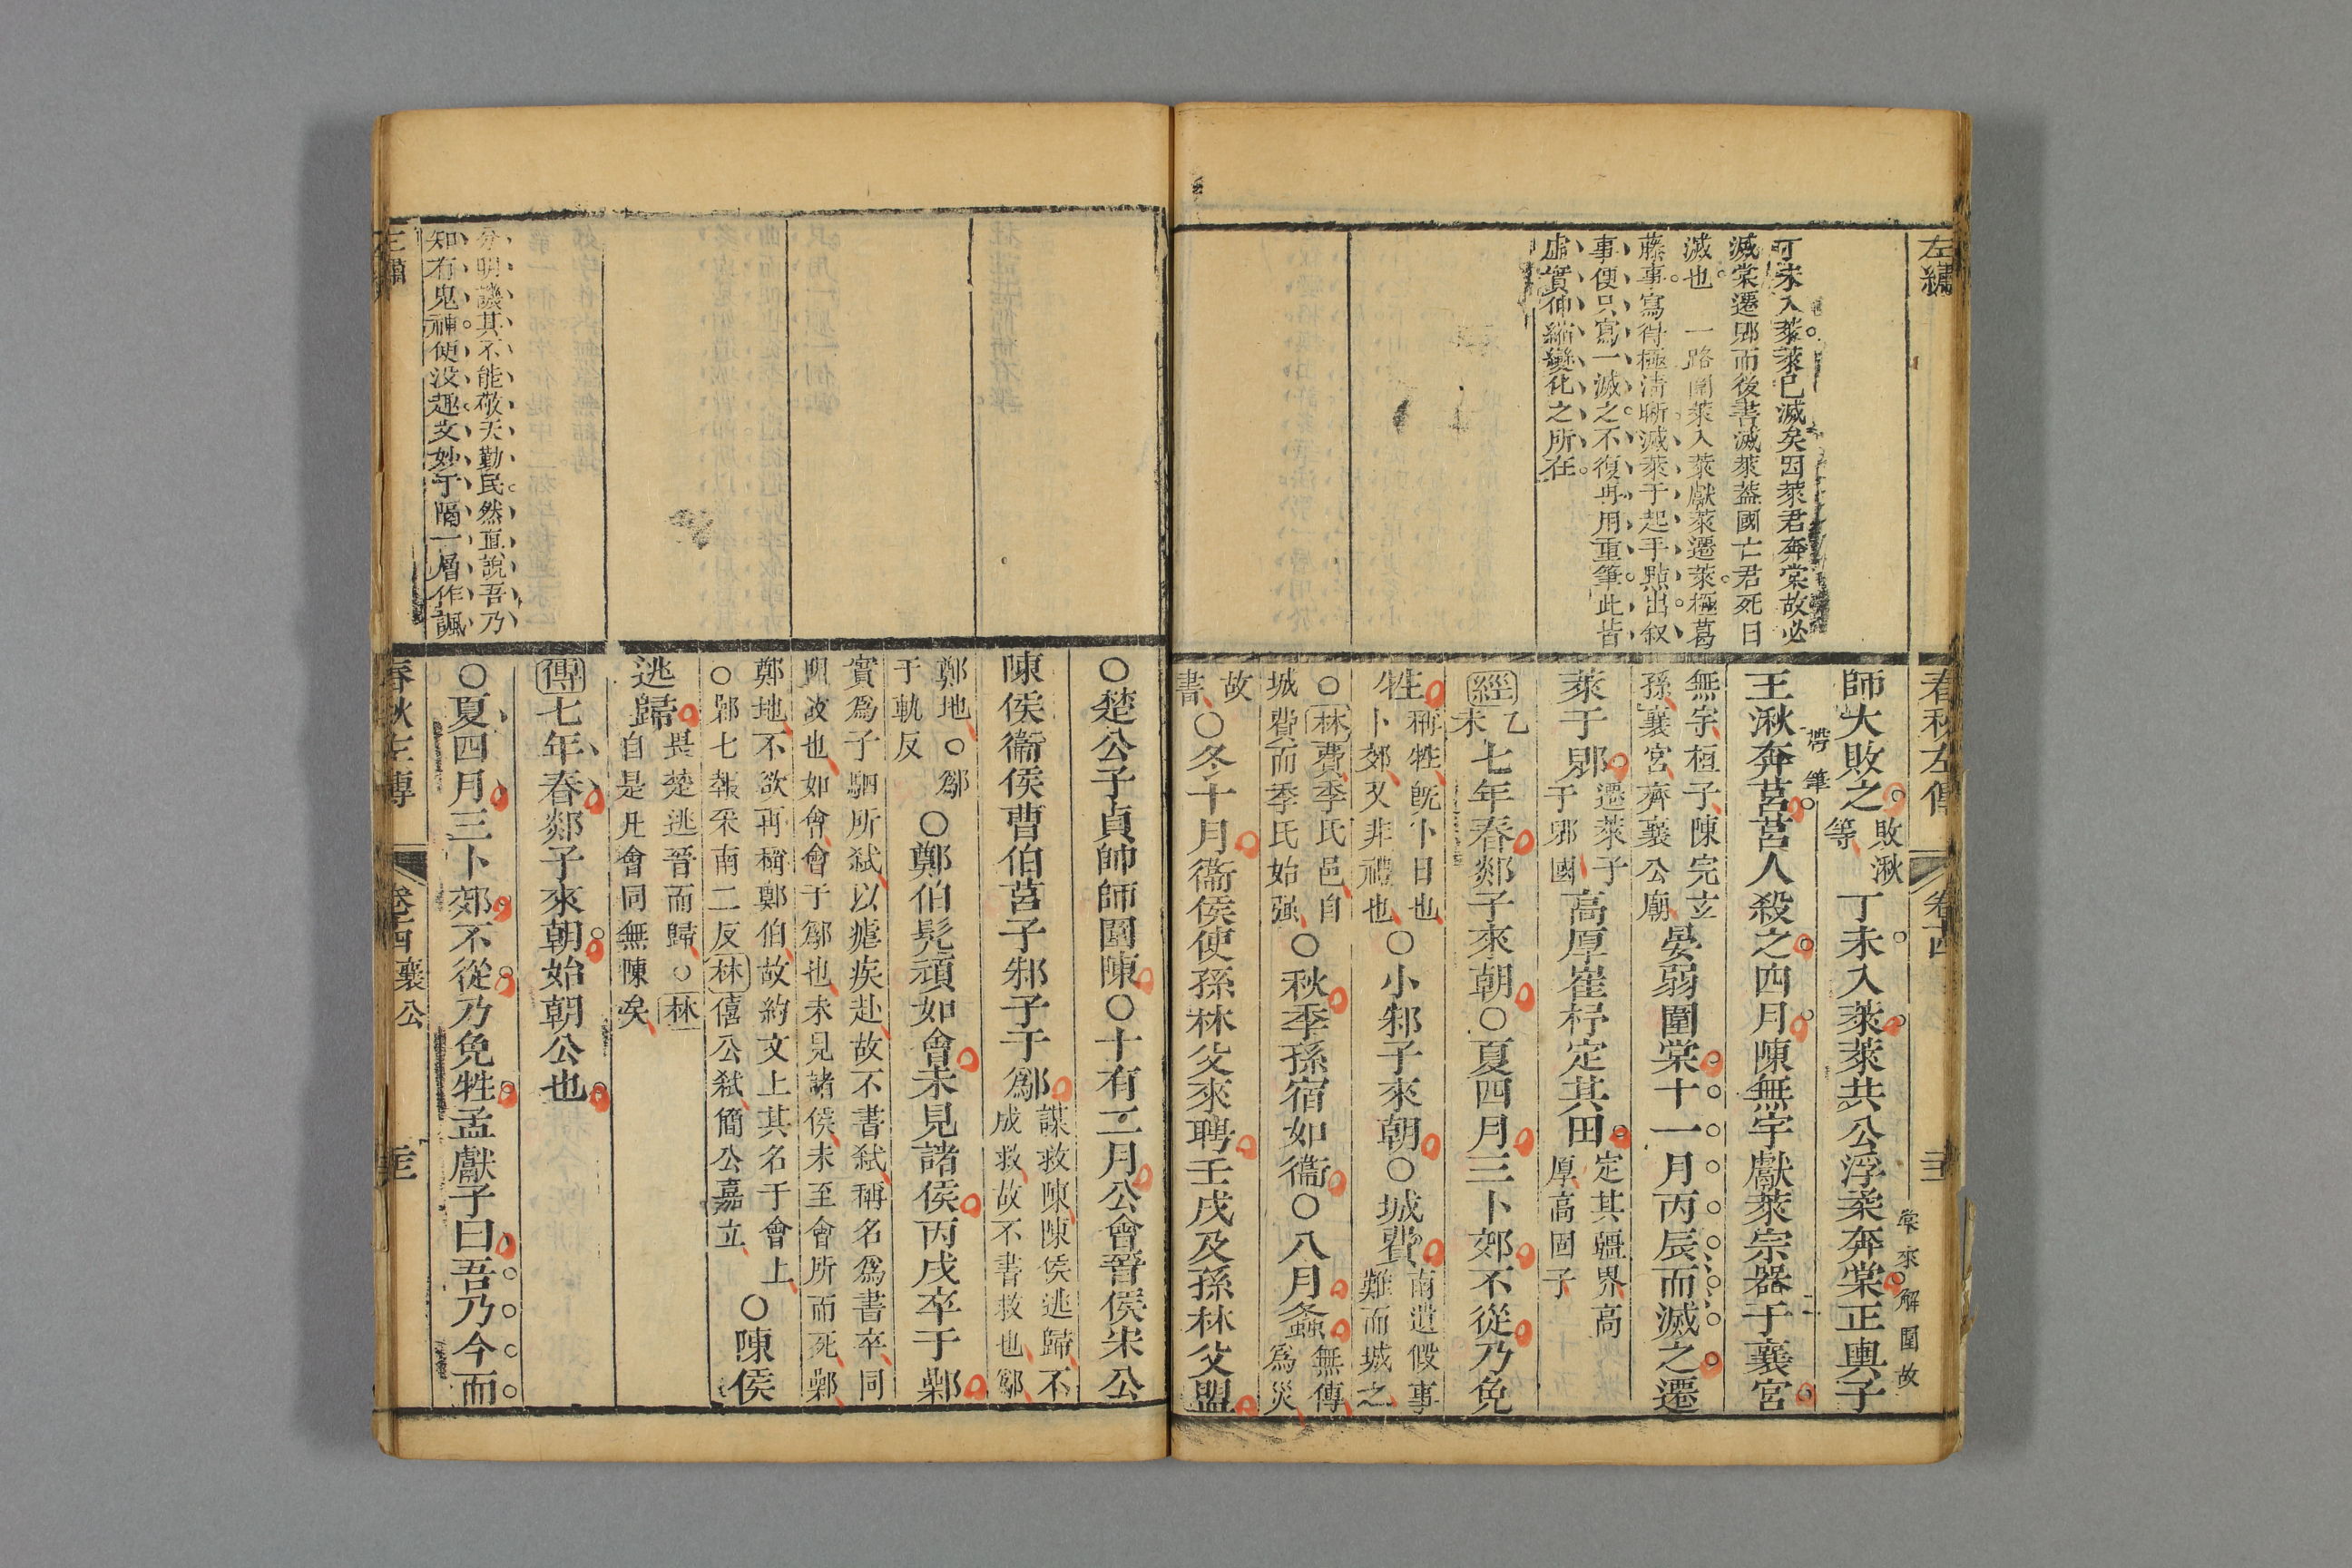 左繡
丁未入萊萊已滅矣因萊君奔棠故必
滅棠遷郳而後書滅萊蓋國亡君死曰
滅也 一路圍萊入萊獻萊遷萊極葛
藤事寫得極清晰滅萊于起手點出叙
事便只寫一滅之不復再用重筆此皆
虛實伸縮變化之所在
春秋左傳 卷十四
師大敗之敗湫等丁未入萊萊共公浮柔奔棠正輿子
棠來解圍故
王湫奔莒莒人殺之四月陳無宇獻萊宗器于襄宮
帶筆
無宇桓子陳完玄
孫襄宮齊襄公廟
晏弱圍棠十一月丙辰而滅之遷
萊于郳遷萊子于郳國高厚崔杼定其田定其疆界高厚高固子
經乙未七年春郯子來朝○夏四月三卜郊不從乃免
牲稱牲旣卜日也卜郊又非禮也○小邾子來朝○城費南遺假事難而城之
○林費季氏邑自城費而季氏始强○秋季孫宿如衞○八月螽無傳爲災
故書○冬十月衞侯使孫林父來聘壬戌及孫林父盟
○楚公子貞帥師圍陳○十有二月公會晉侯宋公
陳侯衞侯曹伯莒子邾子于鄬謀救陳陳侯逃歸不成救故不書救也鄬
鄭地○鄬于軌反○鄭伯髡頑如會未見諸侯丙戌卒于鄵
實爲子駟所弒以瘧疾赴故不書弒稱名爲書卒同
盟故也如會會于鄬也未見諸侯未至會所而死鄵
鄭地不欲再稱鄭伯故約文上其名于會上
○鄵七報采南二反林僖公弒簡公嘉立○陳侯
逃歸畏楚逃晉而歸○林自是凡會同無陳矣
傳七年春郯子來朝始朝公也
○夏四月三卜郊不從乃免牲孟獻子曰吾乃今而
分明譏其不能敬天勤民然直說吾乃
知有鬼神便没趣文妙于隔一層作諷
左繡
春秋左傳 卷十四 襄公